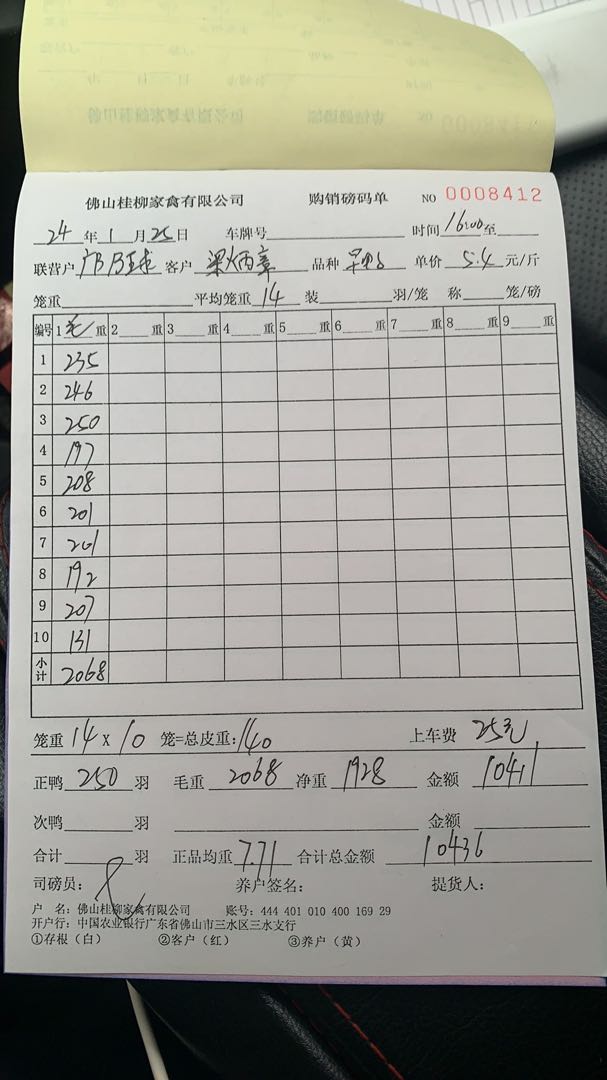 佛山桂柳家禽有限公司 购销磅码单 NO 0008412
24年1月25日 车牌号 时间16:00至
联营户 客户 梁炳章 品种 单价 5.4 元/斤
笼重 平均笼重 14 装 羽/笼 称 笼/磅
编号 1 毛 重 2 重 3 重 4 重 5 重 6 重 7 重 8 重 9 重
1 235
2 246
3 250
4 197
5 208
6 201
7 201
8 192
9 207
10 131
小计 2068
笼重 14 X 10 笼=总皮重:140 上车费 25元
正鸭 250 羽 毛重 2068 净重 1928 金额 10411
次鸭 羽 金额
合计 羽 正品均重 7.71 合计总金额 10436
司磅员: 养户签名: 提货人:
户 名:佛山桂柳家禽有限公司 账号:444 401 010 400 169 29
开户行:中国农业银行广东省佛山市三水区三水支行
①存根(白) ②客户(红) ③养户(黄)